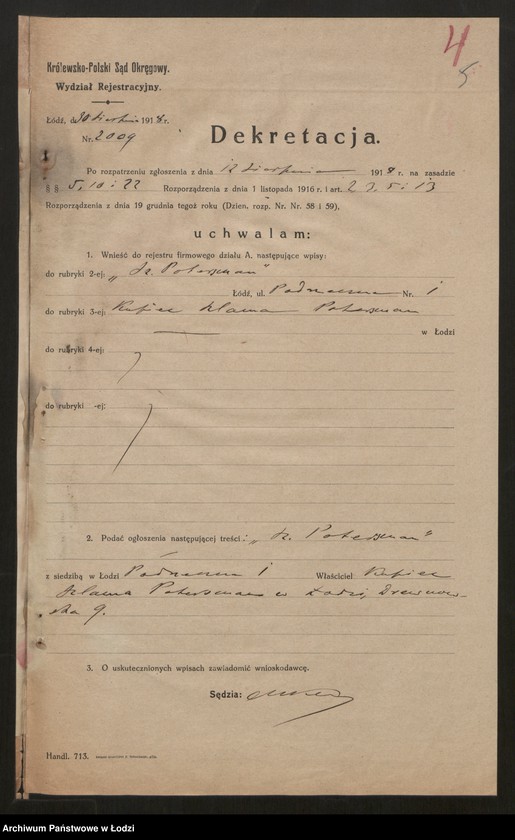 4
5
Królewsko-Polski Sąd Okręgowy.
Wydział Rejestracyjny.
Łódź, d. 30 sierpnia 1918 r.
Nr. 2009
Dekretacja.
Po rozpatrzeniu zgłoszenia z dnia 12 sierpnia 1918 r. na zasadzie
§ § 5, 10 i 22 Rozporządzenia z dnia 1 listopada 1916 r. i art. 2 3, 5 i 13
Rozporządzenia z dnia 19 grudnia tegoż roku (Dzien. rozp. Nr. Nr. 58 i 59),
uchwalam:
1. Wnieść do rejestru firmowego działu A. następujące wpisy:
do rubryki 2-ej: „Sz. Poterszman"
Łódź, ul. Podrzeczna Nr. 1
do rubryki 3-ej: Kupiec Szlama Poterszman
w Łodzi
do rubryki 4-ej:
do rubryki -ej:
2. Podać ogłoszenia następującej treści: „Sz. Poterszman"
z siedzibą w Łodzi Podrzeczna 1 Właściciel Kupiec
Szlama Poterszman w Łodzi, Drewnow-
ska 9.
3. O uskutecznionych wpisach zawiadomić wnioskodawcę.
Sędzia:
Handl. 713.
Archiwum Państwowe w Łodzi